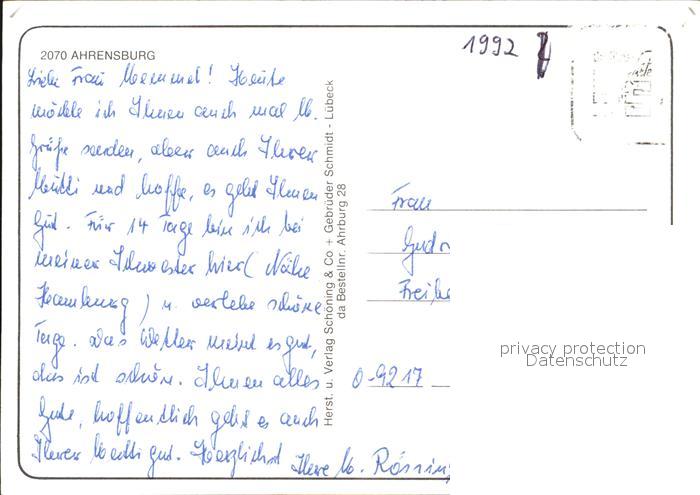 2070 AHRENSBURG
1992
Liebe Frau Memmel! Heute
möchte ich Ihnen auch mal lb.
Grüße senden, aber auch Ihrer
Mutti und hoffe, es geht Ihnen
gut. Für 14 Tage bin ich bei
meiner Schwester hier (Nähe
Hamburg) u. verlebe schöne
Tage. Das Wetter meint es gut,
das ist schön. Ihnen alles
Gute, hoffentlich geht es auch
Ihrer Mutti gut. Herzlichst Ihre M.
Herst. u. Verlag Schöning & Co + Gebrüder Schmidt - Lübeck
da Bestellnr. Ahrburg 28
Frau
Gudr
Freibe
O-9217
privacy protection
Datenschutz